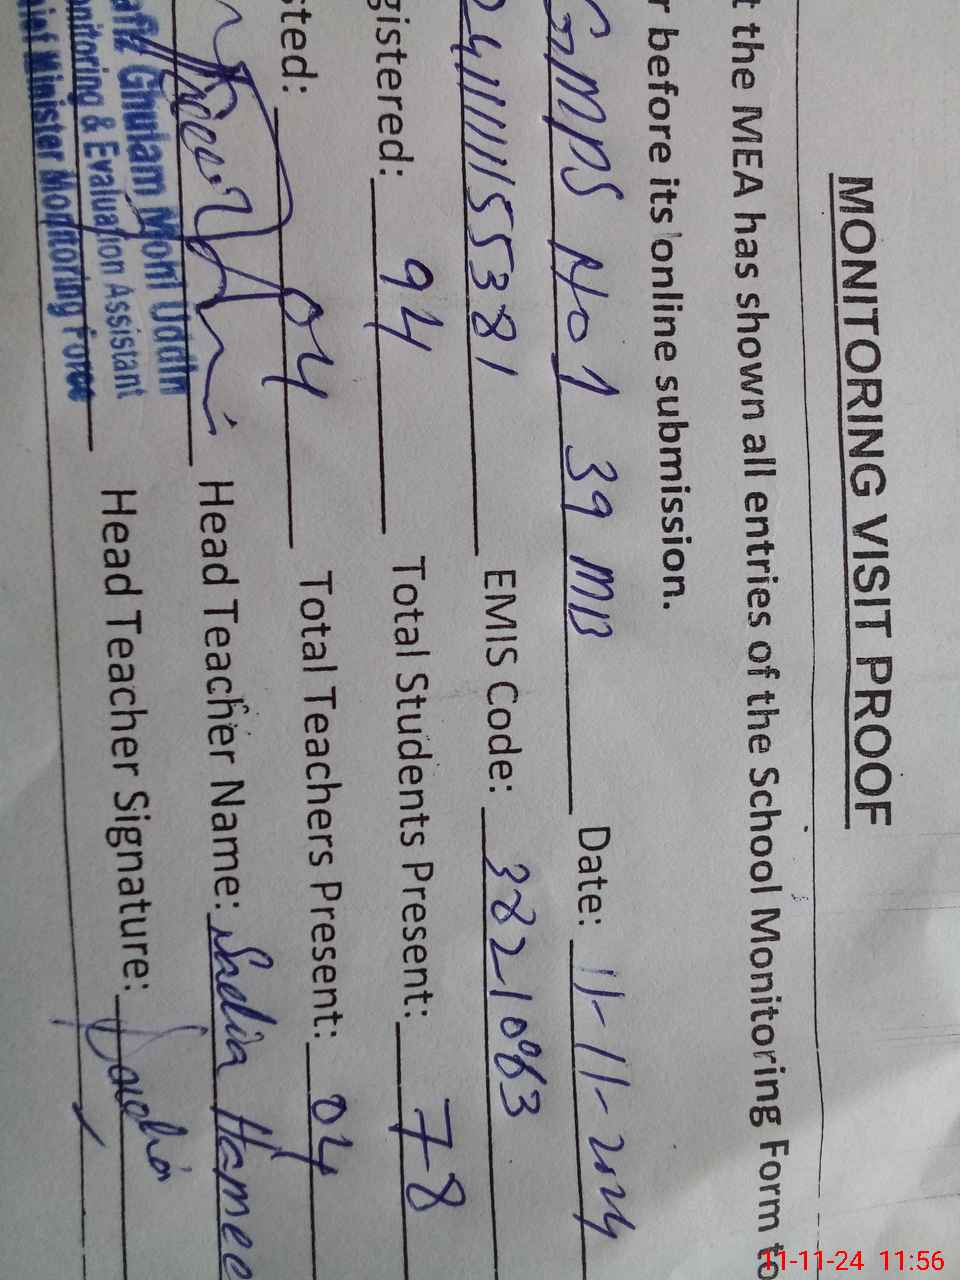 MONITORING VISIT PROOF
t the MEA has shown all entries of the School Monitoring Form to
r before its online submission.
GMPS No 1 39 MB Date: 11-11-2024
241111155381 EMIS Code: 38210
gistered: 94 Total Students Present: 78
sted: 04 Total Teachers Present: 04
Head Teacher Name: Sadia Hamee
Head Teacher Signature:
afiz Ghulam Mohi Uddin
onitoring & Evaluation Assistant
ief Minister Monitoring Force
11-11-24 11:56